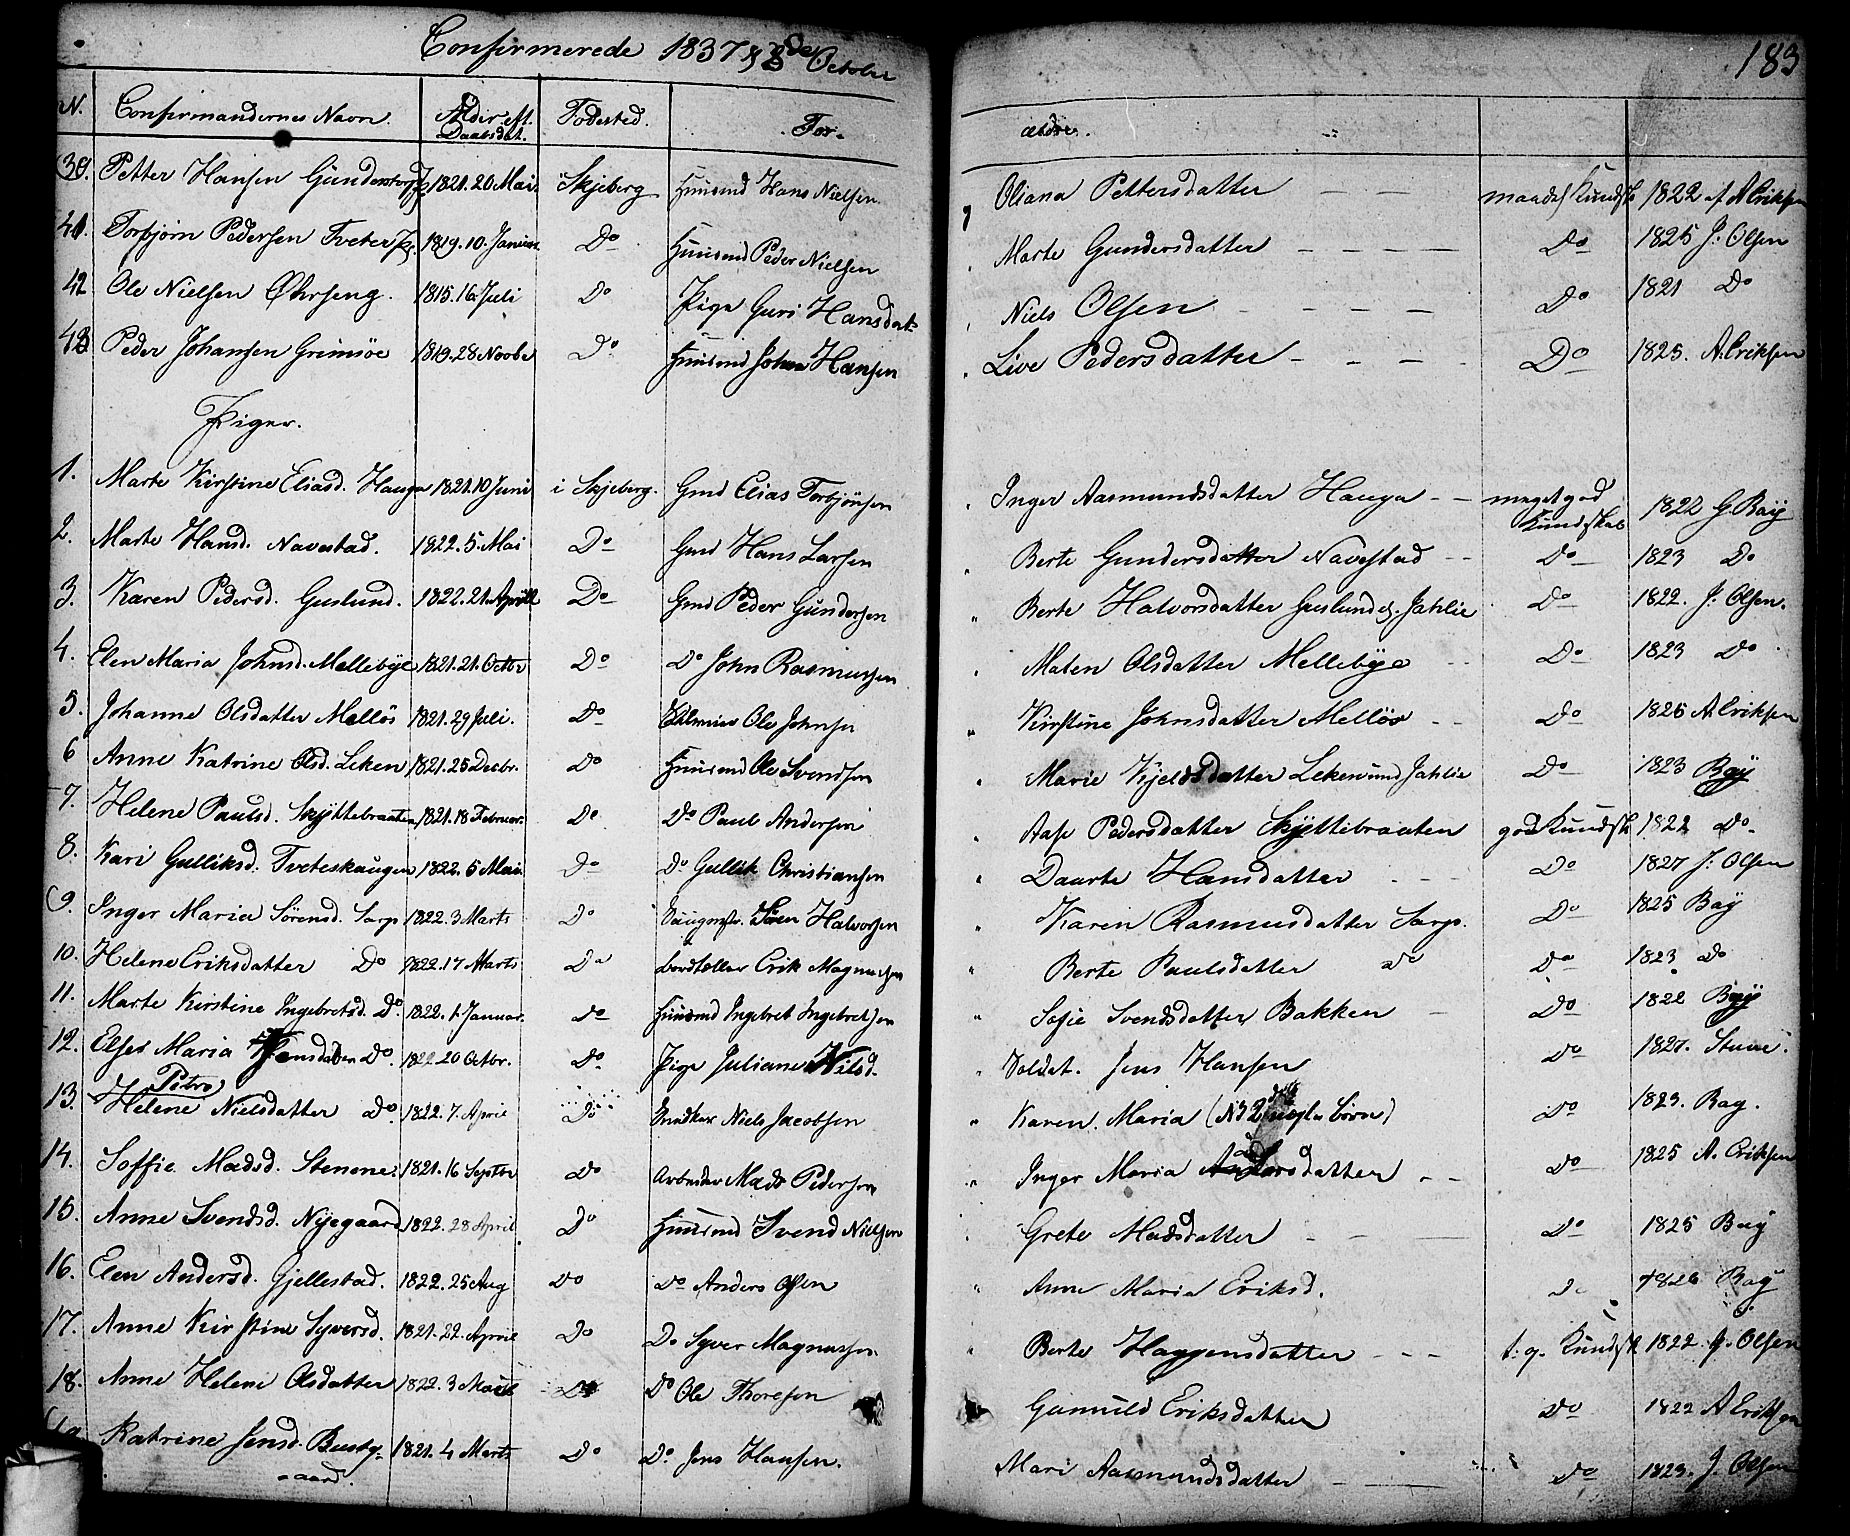 Confirmerede 1837 8de October
183
N. Confirmandernes Navn. Alder eft. Daabsdat. Fødested. For- ældre.
Petter Hansen 1821. 20 Mai Skjeberg Huusmd Hans Nielsen Oliana Pettersdatter maadel Kundsk 1822 af A Eriksen
41. Torbjørn Pedersen Tveter 1819. 10. Januar Do Huusmd Peder Nielsen Marte Gundersdatter Do 1825 J: Olsen
42 Ole Nielsen Øhrseng. 1815. 16 Juli Do Pige Guri Hansdat Niels Olsen Do 1821 Do
43 Peder Johansen Grimsøe 1819. 28 Novbr Do Huusmd Johan Hansen Live Pedersdatter Do 1825. A. Eriksen
Piger.
1. Marte Kirstine Eliasd. Hauge 1821. 10 Juni i Skjeberg. Gmd Elias Torbjönsen Inger Aasmundsdatter Hauga meget god Kundskab 1822 G. Bay
2. Marte Hansd. Navestad. 1822. 5. Mai Do Gmd Hans Larsen Berte Gundersdatter Navestad Do 1823 Do
3. Karen Pedersd. Guslund. 1822. 21. April Do Gmd Peder Gundersen Berte Halvorsdatter Guslund Do 1822. J: Olsen.
4. Elen Maria Johnsd. Mellebye 1821. 21. Octbr Do Do John Rasmusen Maten Olsdatter Mellebye Do 1823 Do
5. Johanne Olsdatter Melløs 1821. 29 Juli. Do Ole Johnsen Kirstine Johnsdatter Melløs Do 1825 A. Eriksen
6 Anne Katrine Olsd. Leken 1821. 25 Decbr. Do Huusmd Ole Svendsen Marie Kjeldsdatter Do 1823 Bay
7. Helene Paulsd. Skyttebraaten 1821. 18 Februar. Do Do Paul Andersen Aase Pedersdatter Skyttebraaten god Kundsk 1821 Do
8. Kari Gulliksd. Tveteskaugen 1822. 5 Mai Do Do Gullik Christiansen Daarte Hansdatter Do 1827 J: Olsen
9. Inger Maria Sörensd. Sarps 1822. 3 Marts Do Sören Halvorsen Karen Rasmusdatter Sarps. Do 1825 Bay
10. Helene Eriksdatter Do 1822. 17 Marts Do Erik Magnusen Berte Paulsdatter Do Do 1823 Do
11. Marte Kirstine Ingebretsd. Do 1822. 1. Januar. Do Huusmd Ingebret Ingebretsen Sofie Svendsdatter Bakken Do 1822 Bay
12. Elses Maria Do. 1822. 20 Octbr. Do. Pige Juliane Nilsd. Soldat. Jens Hansen Do 1827.
13. Petro Helene Nielsdatter Do. 1822. 7. April Do Snedker Niels Jacobsen Karen. Maria (No 2 uegte börn) Do 1823. Bay.
14. Soffie Madsd. Stenene 1821. 16 Septbr Do Arbeider Mads Pedersen Inger Maria Do 1825 A. Eriksen
15. Anne Svendsd. Nyegaard 1822. 28 April Do Huusmd Svend Nielsen Grete Madsdatter Do 1825 Bay
16. Elen Andersd. Gjellestad. 1822. 25 Aug Do Do Anders Olsen Anne Maria Eriksd. Do 1826 Bay
17. Anne Kirstine Syversd. 1821. 22. April Do Do Syver Magnussen Berte Haggensdatter t. g. Kundsk 1822 J. Olsen
18. Anne Helene Olsdatter 1822. 3 Do Do Ole Thoresen Gunnild Eriksdatter Do 1822 A Eriksen
Katrine Jensd. Bustg- aard. 1821. 4 Marts Do Do. Jens Hansen. Mari Aasmundsdatter Do 1823. J. Olsen